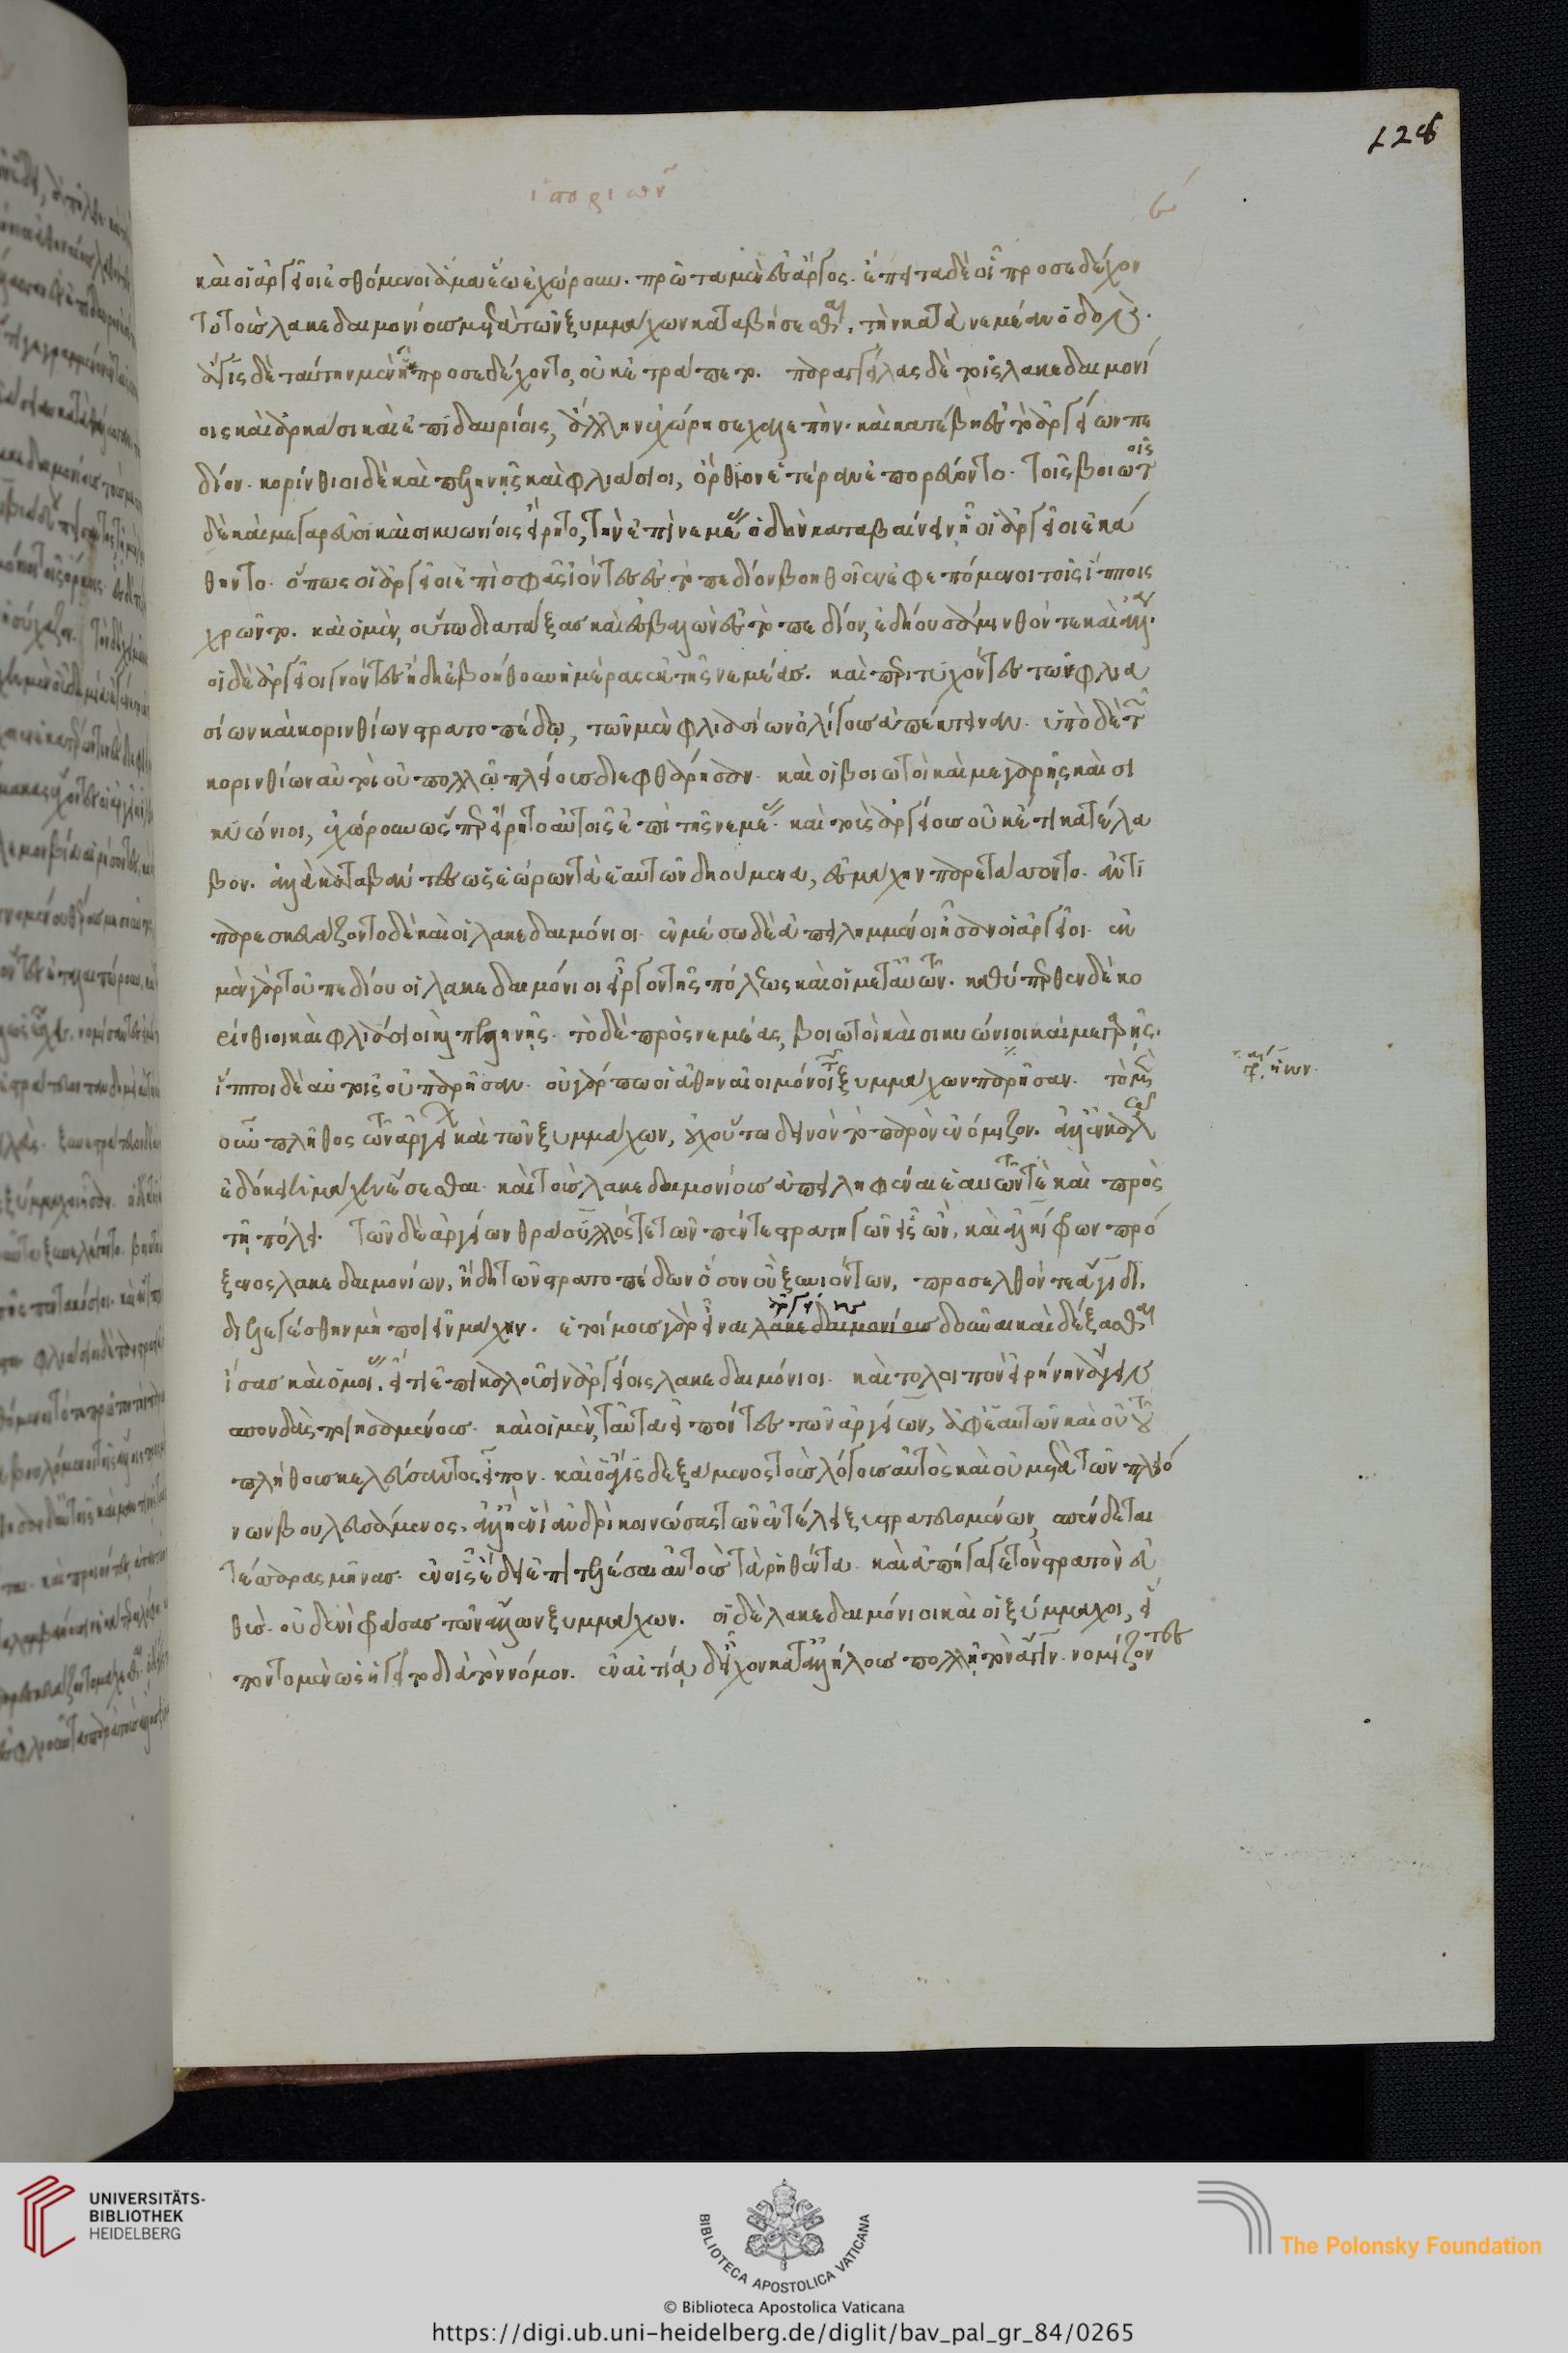 128
ἱστοριῶν
ε΄
καὶ οἱ ἀργεῖοι ἐσθόμενοι ἅμα ἕω ἐχώρουν. πρῶτα μὲν ἐς ἄργος. ἔπειτα δὲ οἷ προσεδέχον
το τοὺς λακεδαιμονίους μετὰ τῶν ξυμμάχων καταβήσεσθαι, τὴν κατὰ νεμέαν ὁδόν.
ἆγις δὲ ταύτην μὲν ἣν προσεδέχοντο, οὐκ ἐτράπετο. παραγγείλας δὲ τοῖς λακεδαιμονί
οις καὶ ἀρκάσι καὶ ἐπιδαυρίοις, ἄλλην ἐχώρησε χαλεπὴν. καὶ κατέβη ἐς τὸ ἀργείων πε
δίον. κορίνθιοι δὲ καὶ πελληνῆς καὶ φλιάσιοι, ὄρθιον ἑτέραν ἐπορεύοντο. τοῖς βοιωτοῖς
δὲ καὶ μεγαρεῦσι καὶ σικυωνίοις εἴρητο, τὴν ἐπὶ νεμέας ὁδὸν καταβαίνειν ᾗ οἱ ἀργεῖοι ἐκά
θηντο. ὅπως οἱ ἀργεῖοι ἐπὶ σφᾶς ἰόντες ἐς τὸ πεδίον βοηθοῖεν ἐφεπόμενοι τοῖς ἵπποις
χρῶντο. καὶ ὁ μὲν, οὕτω διατάξας καὶ ἐσβαλὼν ἐς τὸ πεδίον, ἐδήου σάμινθόν τε καὶ ἄλλα.
οἱ δὲ ἀργεῖοι γνόντες ἤδη ἐβοήθουν ἡμέρας ἐκ τῆς νεμέας. καὶ περιτυχόντες τῶν φλια
σίων καὶ κορινθίων στρατοπέδῳ, τῶν μὲν φλιασίων ὀλίγους ἀπέκτειναν. ὑπὸ δὲ τῶν
κορινθίων αὐτοὶ οὐ πολλῷ πλείους διεφθάρησαν. καὶ οἱ βοιωτοὶ καὶ μεγαρῆς καὶ σι
κυώνιοι, ἐχώρουν ὥσπερ εἴρητο αὐτοῖς ἐπὶ τῆς νεμέας. καὶ τοὺς ἀργείους οὐκέτι κατέλα
βον. ἀλλὰ καταβάντες ὡς ἑώρων τὰ ἑαυτῶν δηούμενα, ἐς μάχην παρετάσσοντο. ἀντι
παρεσκευάζοντο δὲ καὶ οἱ λακεδαιμόνιοι. ἐν μέσω δὲ ἀπειλημμένοι ἦσαν οἱ ἀργεῖοι. ἐκ
μὲν γὰρ τοῦ πεδίου οἱ λακεδαιμόνιοι εἶργον τῆς πόλεως καὶ οἱ μετ' αὐτῶν. καθύπερθεν δὲ κο
ρίνθιοι καὶ φλιάσιοι καὶ πελληνῆς. τὸ δὲ πρὸς νεμέας, βοιωτοὶ καὶ σικυώνιοι καὶ μεγαρῆς.
ἵπποι δὲ αὐτοῖς οὐ παρῆσαν. οὐ γάρ πω οἱ ἀθηναῖοι μόνοι τῶν ξυμμάχων παρῆσαν. τὸ μὲν
οὖν πλῆθος τῶν ἀργείων καὶ τῶν ξυμμάχων, οὐχ οὕτω δεινὸν τὸ παρὸν ἐνόμιζον. ἀλλ' ἐν καλῶ
ἐδόκει ἡ μάχη ἔσεσθαι. καὶ τοὺς λακεδαιμονίους ἀπειληφέναι ἐν αυτῶν τε καὶ πρὸς
τῇ πόλει. τῶν δὲ ἀργείων θράσυλλός τε τῶν πέντε στρατηγῶν εἷς ὢν, καὶ ἀλκίφων πρό
ξενος λακεδαιμονίων, ἤδη τῶν στρατοπέδων ὅσον οὐ ξυνιόντων, προσελθόντε ἄγιδι.
διελεγέσθην μὴ ποιεῖν μάχην. ἑτοίμους γὰρ εἶναι λακεδαιμονίους ἀργείους δοῦναι καὶ δέξασθαι
ἴσας καὶ ὁμοίας. εἴ τι ἐπικαλοῦσιν ἀργείοις λακεδαιμόνιοι. καὶ τολοιπὸν εἰρήνην ἄγειν
σπονδὰς ποιησαμένους. καὶ οἱ μὲν, ταῦτα εἰπόντες τῶν ἀργείων, ἀφ' ἑαυτῶν καὶ οὐ τοῦ
πλήθους κελεύσαντος εἶπον. καὶ ὁ ἆγις δεξάμενος τοὺς λόγους αὐτὸς καὶ οὐ μετὰ τῶν πλειό
νων βουλευσάμενος. ἀλλ' ἢ ἑνὶ ἀνδρὶ κοινώσας τῶν ἐν τέλει ξυστρατευομένων, σπένδεται
τέσσαρας μῆνας. ἐν οἷς ἔδει ἐπιτελέσαι αὐτοὺς τὰ ῥηθέντα. καὶ ἀπήγαγε τὸν στρατὸν εὐ
θύς. οὐδενὶ φράσας τῶν ἄλλων ξυμμάχων. οἱ δὲ λακεδαιμόνιοι καὶ οἱ ξύμμαχοι, εἵ
ποντο μὲν ὡς ἡγεῖτο διὰ τὸν νόμον. ἐν αἰτίᾳ δ' εἶχον κατ' ἀλλήλους πολλῇ τὸν ἆγιν. νομίζοντες
UNIVERSITÄTS-
BIBLIOTHEK
HEIDELBERG
BIBLIOTECA APOSTOLICA VATICANA
The Polonsky Foundation
© Biblioteca Apostolica Vaticana
https://digi.ub.uni-heidelberg.de/diglit/bav_pal_gr_84/0265